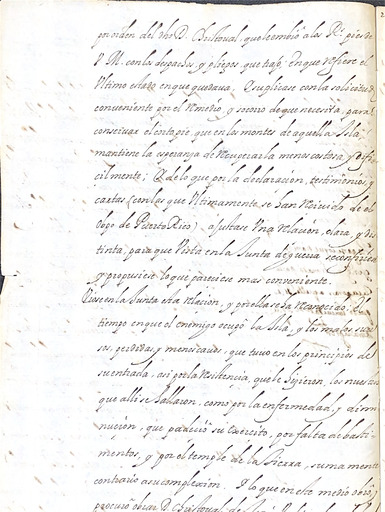 por orden del dho D. Christoual, que le embio a los Rs. pies de
V M. con los despachos, y pliegos, que trajo. En que refiere el
vltimo estado en que quedaua. Y suplicase con la solicitud
conveniente por el remedio, y socorro de que necesita, para
conseruar el entopie, que en los montes de aquella Isla,
mantiene la esperança de recuperarla menos costosa, y difi
cilmente; Y de lo que por la declaracion, testimonios, y
cartas (con las que vltimamente, se han reciuido de el
Obpo de Puerto Rico) ajustase vna relacion, clara, y dis
tinta, para que vista en la Junta de guerra se confiriera
y propusiera lo que pareciese mas conveniente.
Viose en la Junta esta relacion, y por ella se ha reconocido, el
tiempo en que el enemigo ocupó la Isla, y los malos suce
sos, perdidas, y menoscauos, que tuuo en los principios de
su entrada, asi por la resistencia, que le hiçieron, los nuestros
que alli se hallaron, como por la enfermedad, y dimi
nuçion, que padeció su exercito, por falta de basti
mentos, y por el temple de la tierra, sumamente
contrario a su complexion. Y lo que en este medio
procuró obrar D. Christoual de